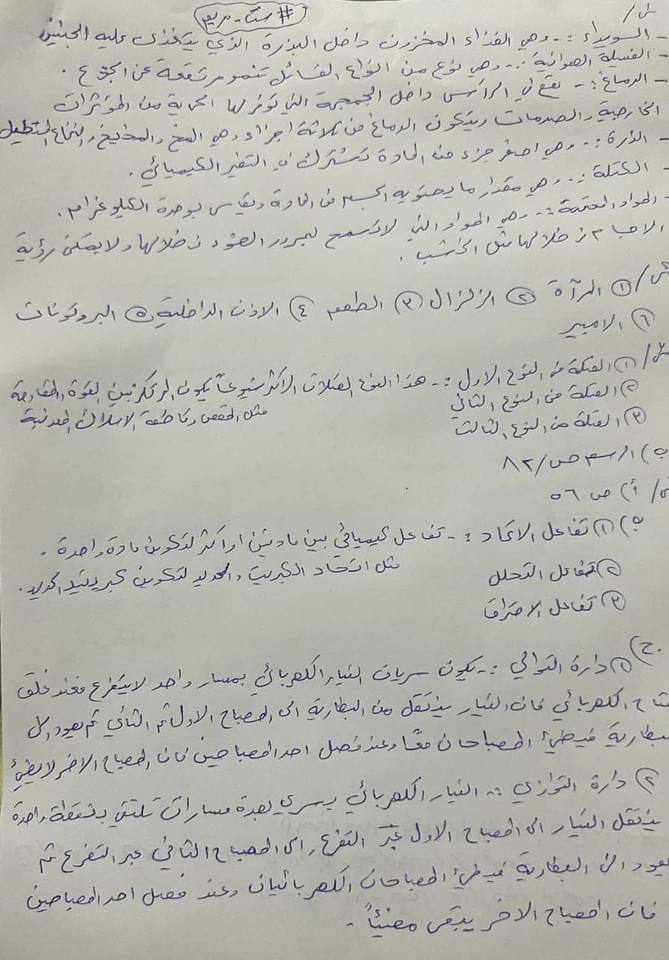 # ست - مريم
س١/
- السويداء :- وهي الغذاء المخزون داخل البذرة الذي يتغذى عليه الجنين
- الفسيلة الهوائية :- وهي نوع من انواع الفسائل تنمو مرتفعة عن الجذع .
- الدماغ :- يقع في الرأس داخل الجمجمة التي توفر لها الحماية من المؤثرات
الخارجية والصدمات ويتكون الدماغ من ثلاثة اجزاء وهي المخ والمخيخ والنخاع المستطيل
- الذرة :- وهي اصغر جزء من المادة تشترك في التغير الكيميائي .
- الكتلة :- وهي مقدار ما يحتويه الجسم من المادة وتقاس بوحدة الكيلوغرام .
- المواد المعتمة :- وهي المواد التي لا تسمح لمرور الضوء من خلالها ولا يمكن رؤية
الاجسام من خلالها مثل الخشب .
س/ ① المرآة ② الزلزال ③ الطعم ④ الاذن الداخلية ⑤ البروتونات
⑥ الامبير
س/ ① العتلة من النوع الاول :- هذا النوع العتلات الاكثر شيوعاً يكون المرتكز بين القوة والمقاومة
② العتلة من النوع الثاني مثل المقص وقاطعة الاسلاك المعدنية
③ العتلة من النوع الثالث
ب) الرسم ص/٨٢
س/ أ) ص ٥٦
ب) ① تفاعل الاتحاد :- تفاعل كيميائي بين مادتين او اكثر لتكوين مادة واحدة .
مثل اتحاد الكبريت والحديد لتكوين كبريتيد الحديد .
② تفاعل التحلل
③ تفاعل الاحتراق
ج) ① دارة التوالي :- يكون سريان التيار الكهربائي بمسار واحد لا يتفرع فعند غلق
المفتاح الكهربائي فان التيار ينتقل من البطارية الى المصباح الاول ثم الثاني ثم يعود الى
البطارية فيضيئ المصباحان معاً وعند فصل احد المصباحين فان المصباح الاخر لا يضيئ
② دارة التوازي :- التيار الكهربائي يسري لعدة مسارات تلتقي بنقطة واحدة
ينتقل التيار الى المصباح الاول عبر التفرع والى المصباح الثاني عبر التفرع ثم
يعود الى البطارية فيضيئ المصباحان الكهربائيان وعند فصل احد المصباحين
فان المصباح الاخر يبقى مضيئاً .